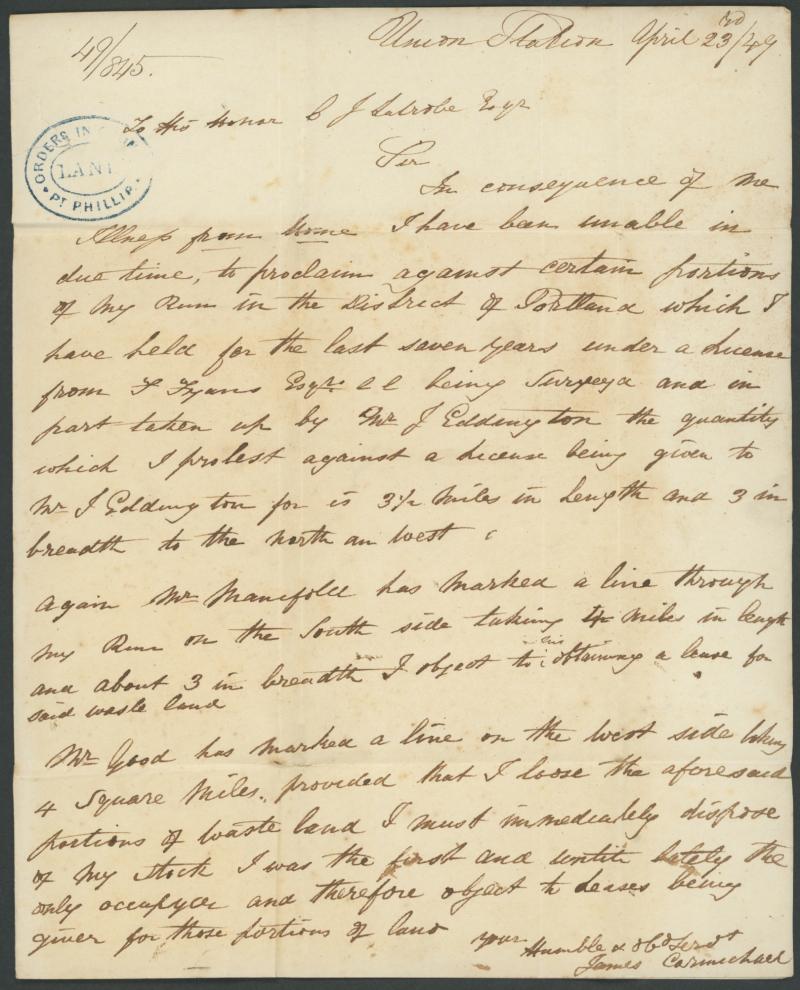 Union Station April 23rd/49
49/845.
To His Honor C J Latrobe Esqr
ORDERS IN
LAN
PT PHILLIP
Sir
In consequence of me
Illness from Home I have been unable in
due time, to proclaim against certain portions
of my Run in the District of Portland which I
have held for the last seven years under a License
from F Fyans Esqr. C C being Surveyd and in
part taken up by Mr J Eddington the quantity
which I protest against a License being given to
Mr J Eddington for is 3½ Miles in Length and 3 in
breadth to the north an West
Again Mr Manifold has Marked a line through
my Run on the South side taking 4 Miles in length
and about 3 in breadth I object to his obtaining a lease for
said waste land
Mr Good has Marked a line on the West side taking
4 Square Miles., provided that I loose the aforesaid
portions of waste land I must immediately dispose
of my stock I was the first and until lately the
only occupyer and therefore object to Leases being
given for those portions of land
your Humble & Obd Servt
James Carmichael